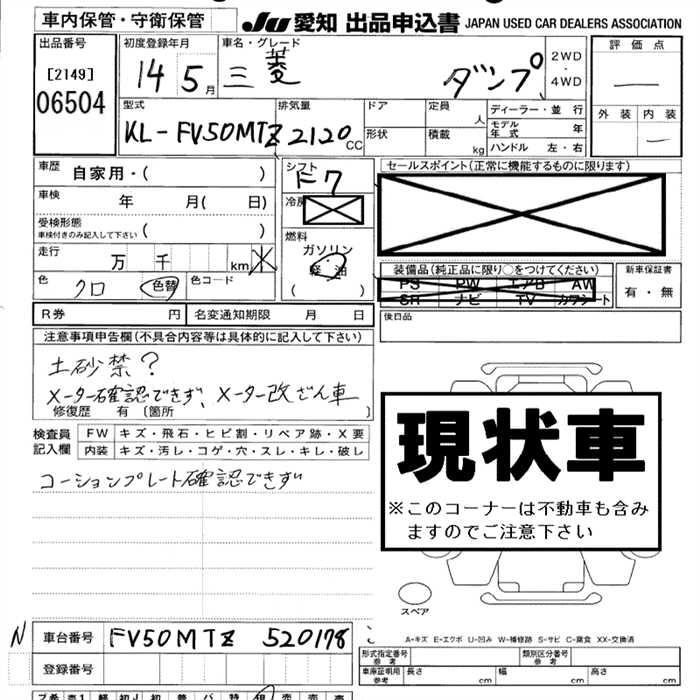 車内保管・守衛保管
JU 愛知 出品申込書 JAPAN USED CAR DEALERS ASSOCIATION
出品番号
[2149]
06504
初度登録年月
14 5月
車名・グレード
三菱 ダンプ
2WD
・
4WD
評価点
外装 内装
型式
KL-FV50MTZ
排気量
2120 CC
ドア
形状
定員 人
積載 kg
ディーラー・並行
モデル年式 年
ハンドル 左・右
車歴
自家用・( )
車検 年 月( 日)
受検形態
車検付きのみ記入して下さい ( )
走行 万 千 km
色 クロ 色替 色コード
シフト F7
冷房
燃料
ガソリン
軽油
( )
セールスポイント(正常に機能するものに限ります)
装備品(純正品に限り○をつけてください)
PS PW エアB AW
SR ナビ TV カワシート
新車保証書
有・無
後日品
R券 円 名変通知期限 月 日
注意事項申告欄(不具合内容等は具体的に記入して下さい)
土砂禁?
メーター確認できず、メーター改ざん車
修復歴 有〔箇所 〕
検査員記入欄
FW キズ・飛石・ヒビ割・リペア跡・X要
内装 キズ・汚レ・コゲ・穴・スレ・キレ・破レ
コーションプレート確認できず
現状車
※このコーナーは不動車も含み
ますのでご注意下さい
スペア
N 車台番号 FV50MTZ 520178
登録番号
A-キズ E-エクボ U-凹み W-補修跡 S-サビ C-腐食 XX-交換済
形式指定番号
参考
類別区分番号
参考
車庫証明用
参考
長さ cm 幅 cm 高さ cm